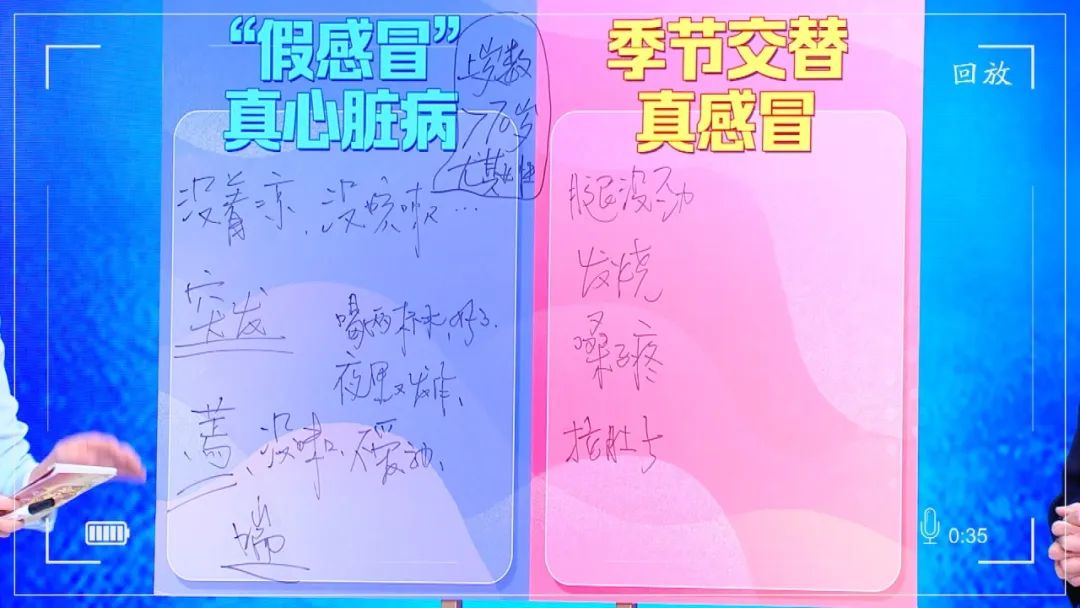 “假感冒”
真心脏病
上岁数
>70岁
尤其女性
没着凉、没咳嗽…
突发
喝两杯水,好了.
夜里又发作、
蔫、没味口、不爱动、
喘
季节交替
真感冒
腿没劲
发烧
嗓子疼
拉肚子
回放
0:35